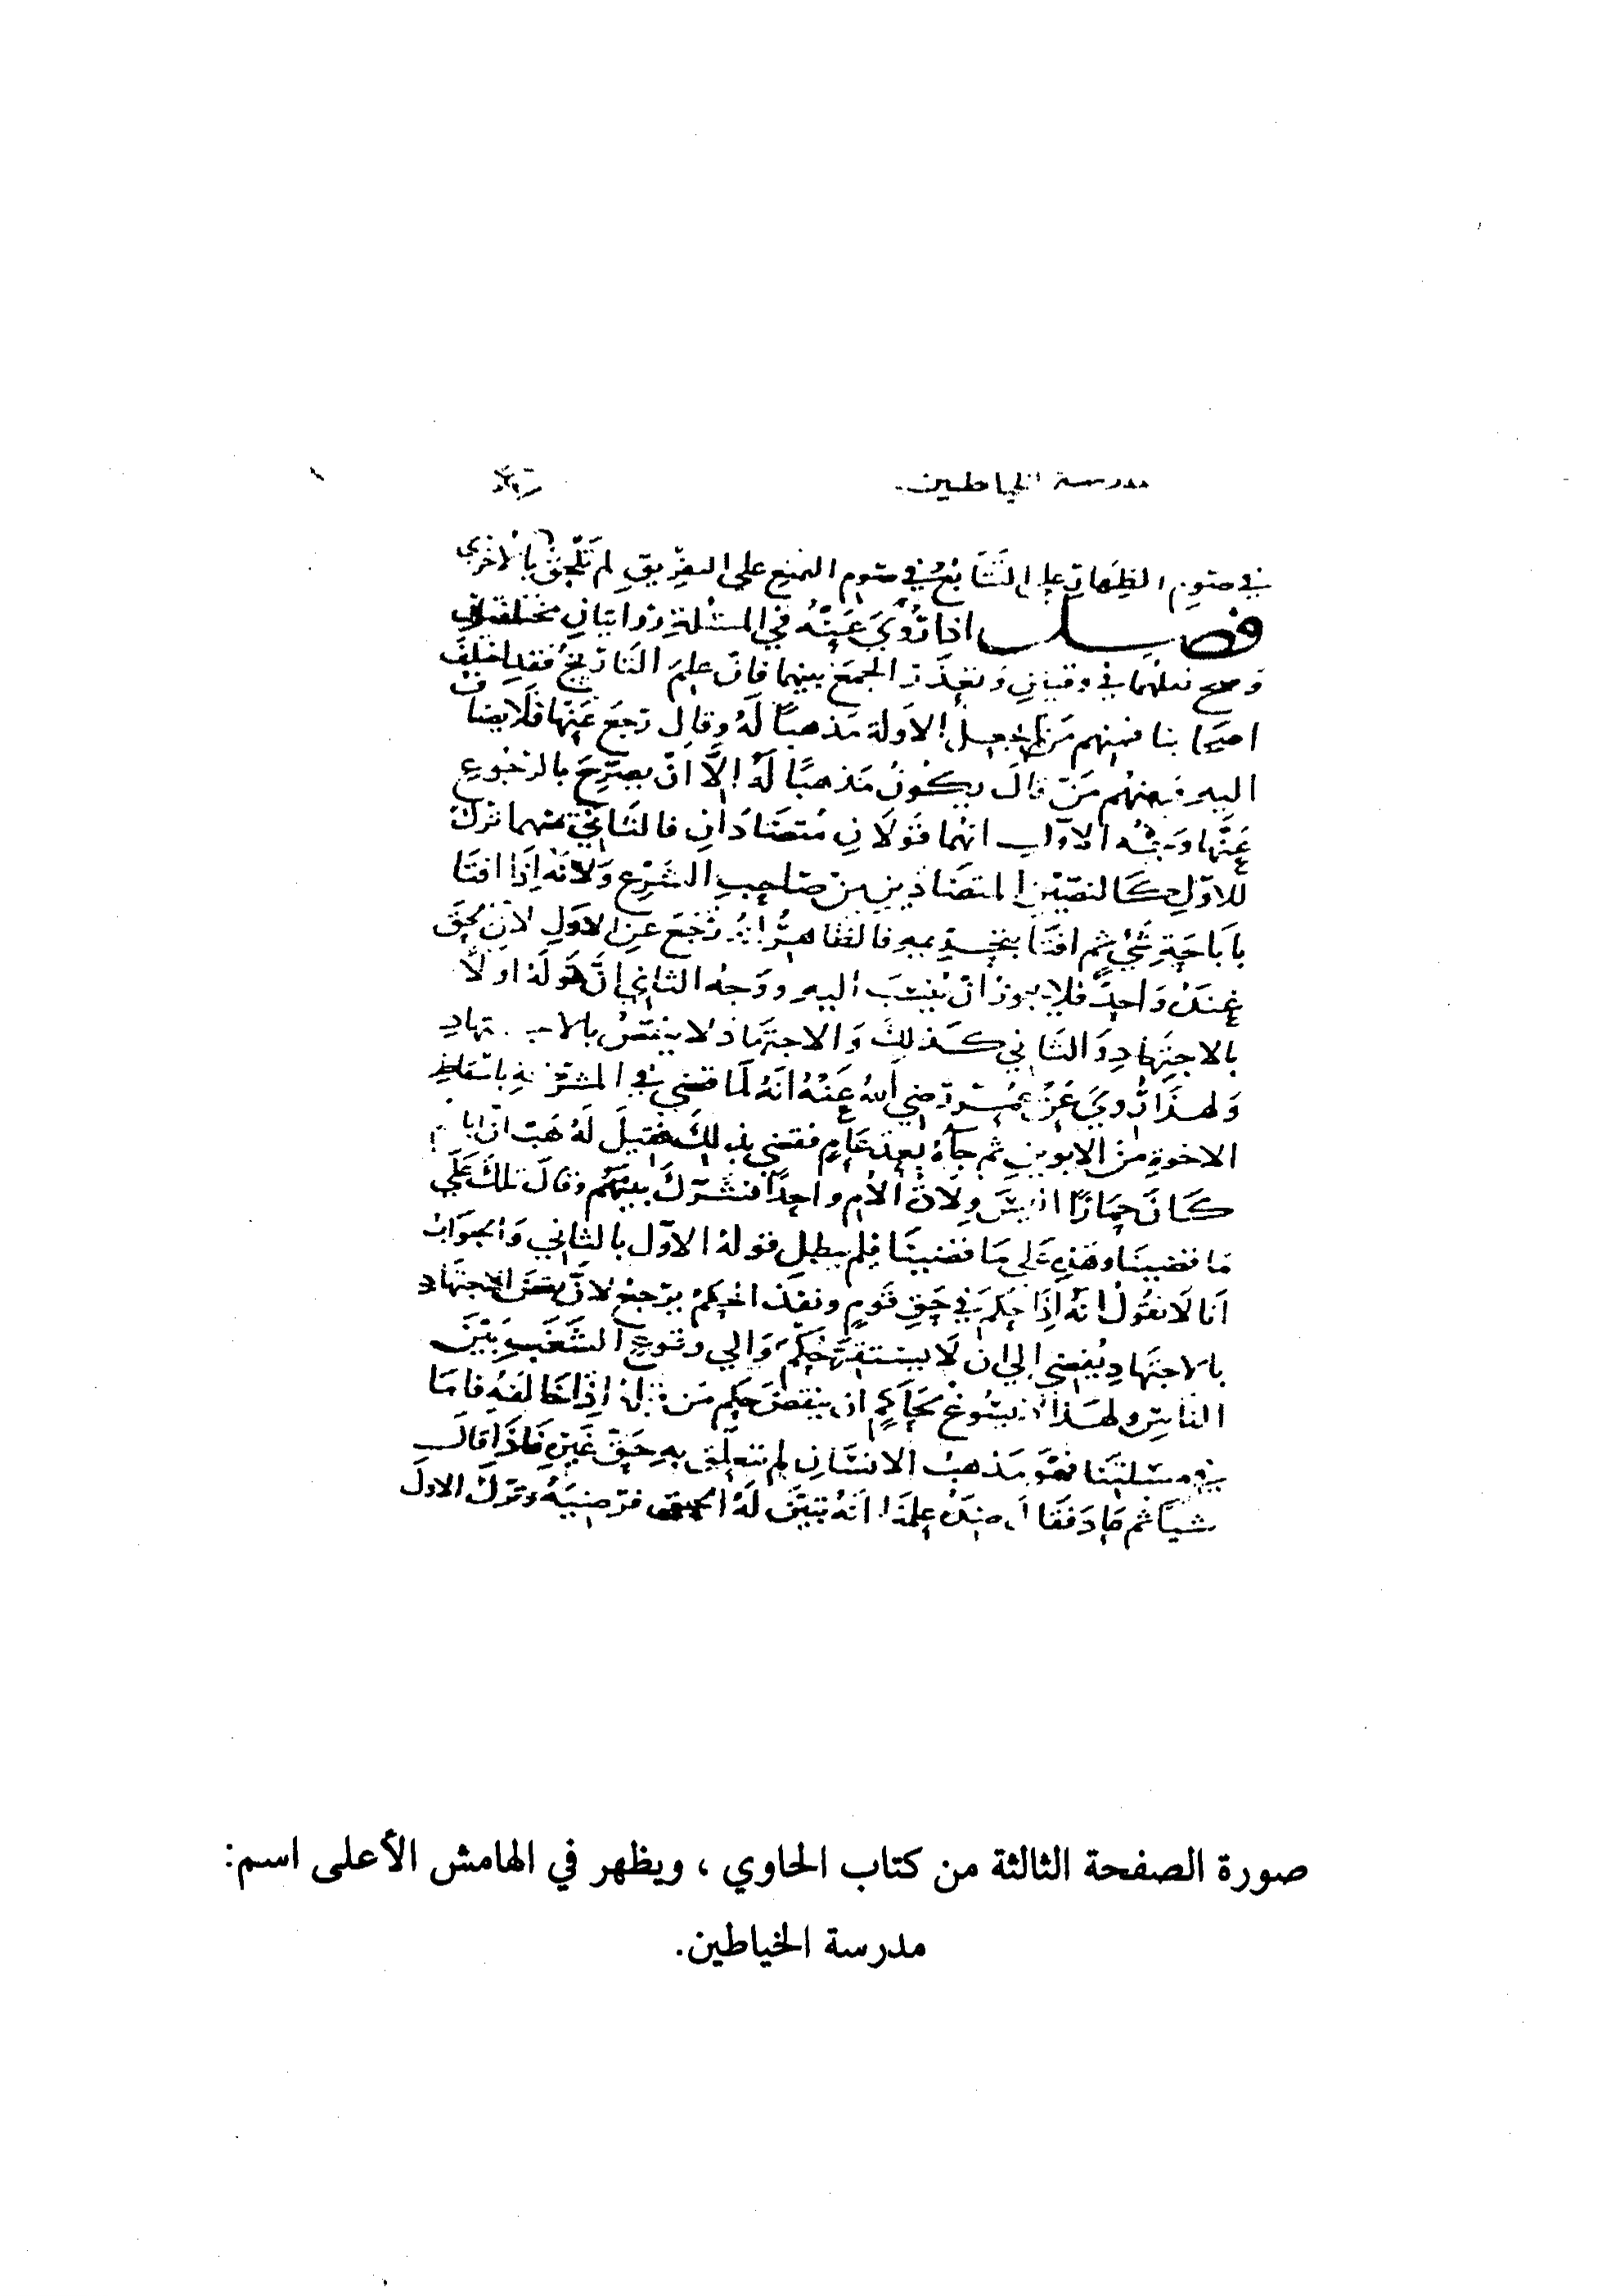 مدرسة الخياطين
في صوم الظهار على التتابع في صوم التمتع على التفريق لم تلحق بالاخرى
فصل اذا روي عنه في المسئلة روايتان مختلفتان
وصح نقلهما في وقتين وتعذر الجمع بينهما فان علم التاريخ فقد اختلف
اصحابنا فمنهم من لم يجعل الاولة مذهبا له وقال رجع عنها فلا يضاف
اليه ومنهم من قال يكون مذهبا له الا ان يصرح بالرجوع
عنها وجه الاول انهما قولان متضادان فالثاني منهما ترك
للاول كالنصين المتضادين من صاحب الشرع ولانه اذا افتا
باباحة شي ثم افتا بتحريمه فالظاهر انه رجع عن الاول لان الحق
عنده واحد فلا يجوز ان ينسب اليه ووجه الثاني ان قوله اولا
بالاجتهاد والثاني كذلك والاجتهاد لا ينقض بالاجتهاد
ولهذا روي عن عمر رضي الله عنه انه لما قضى في المشركة باسقاط
الاخوة من الابوين ثم جآه بعد عام فقضى بذلك فقيل له هب ان ابانا
كان حمارا اليس ولان الام واحدا فشرك بينهم وقال تلك على
ما قضينا وهذه على ما قضينا فلم يبطل قوله الاول بالثاني والجواب
انا لا نقول انه اذا حكم في حق قوم ونفذ الحكم يرجع لان نقض الاجتهاد
بالاجتهاد يفضي الى ان لا يستقر حكم والى وقوع الشغب بين
الناس ولهذا لا يسوغ لحاكم ان ينقض حكم من قبله اذا خالفه فاما
في مسئلتنا فهو مذهب الانسان لم تتعلق به حق غيره فاذا قال
شيا ثم عاد فقال ضده علمنا انه تبين له الحق فرضيه وترك الاول
صورة الصفحة الثالثة من كتاب الحاوي ، ويظهر في الهامش الأعلى اسم:
مدرسة الخياطين.